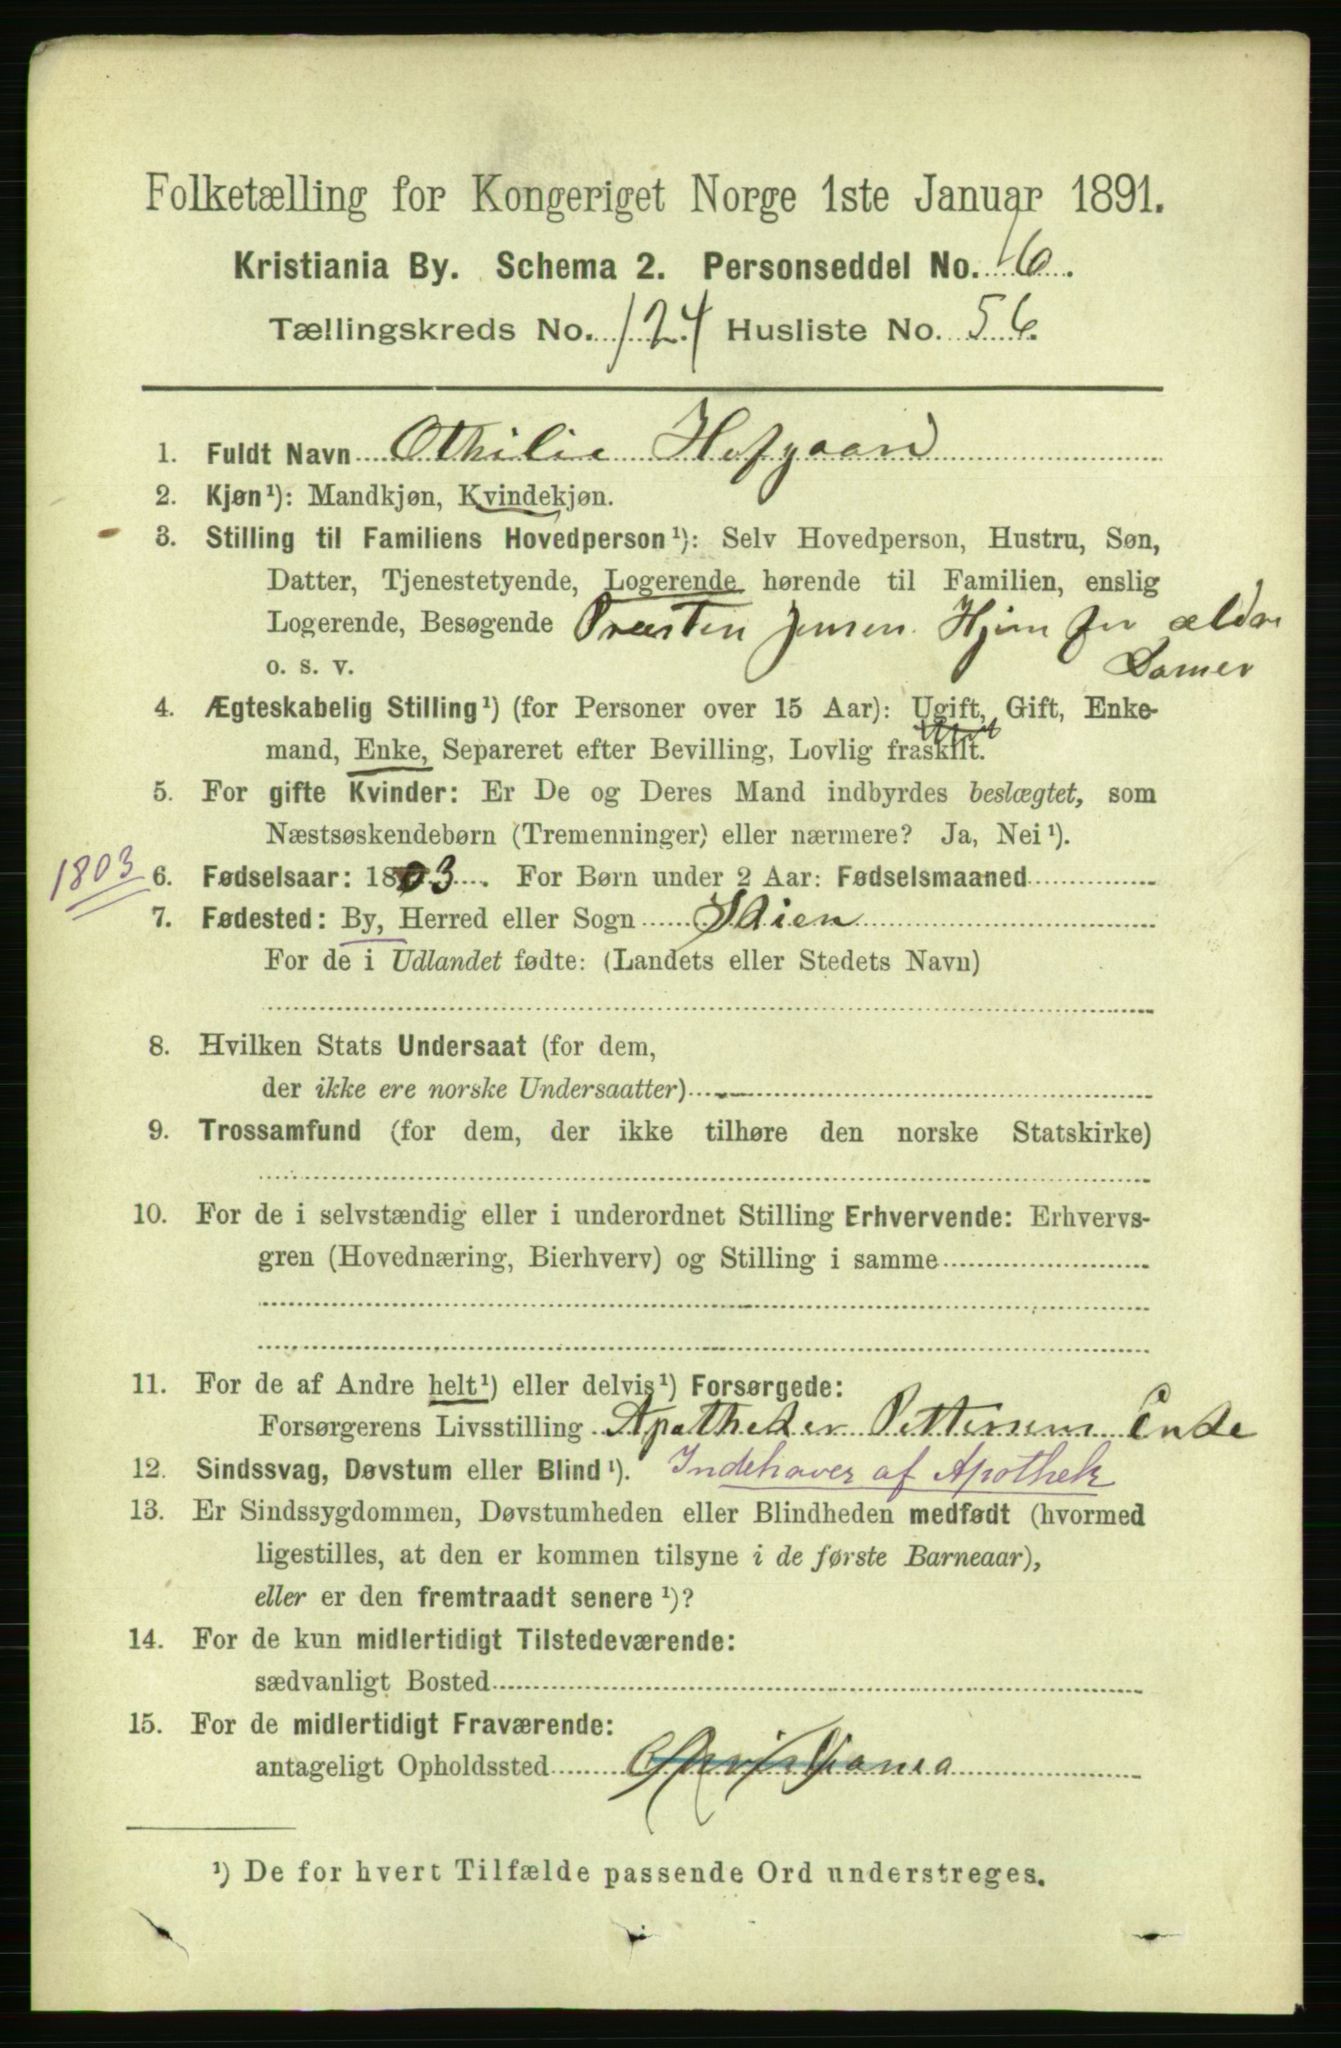 Folketælling for Kongeriget Norge 1ste Januar 1891.
Kristiania By. Schema 2. Personseddel No. 16.
Tællingskreds No. 124 Husliste No. 56.
1. Fuldt Navn Othilie Hofgaard
2. Kjøn¹): Mandkjøn, Kvindekjøn.
3. Stilling til Familiens Hovedperson¹): Selv Hovedperson, Hustru, Søn,
Datter, Tjenestetyende, Logerende hørende til Familien, enslig
Logerende, Besøgende Præsten Jensens Hjem for ældre
o. s. v. Damer
4. Ægteskabelig Stilling¹) (for Personer over 15 Aar): Ugift, Gift, Enke-
mand, Enke, Separeret efter Bevilling, Lovlig fraskilt.
5. For gifte Kvinder: Er De og Deres Mand indbyrdes beslægtet, som
Næstsøskendebørn (Tremenninger) eller nærmere? Ja, Nei¹).
1803 6. Fødselsaar: 1803. For Børn under 2 Aar: Fødselsmaaned
7. Fødested: By, Herred eller Sogn Skien
For de i Udlandet fødte: (Landets eller Stedets Navn)
8. Hvilken Stats Undersaat (for dem,
der ikke ere norske Undersaatter)
9. Trossamfund (for dem, der ikke tilhøre den norske Statskirke)
10. For de i selvstændig eller i underordnet Stilling Erhvervende: Erhvervs-
gren (Hovednæring, Bierhverv) og Stilling i samme
11. For de af Andre helt¹) eller delvis¹) Forsørgede:
Forsørgerens Livsstilling Apotheker Pettersens Enke
12. Sindssvag, Døvstum eller Blind¹). Indehaver af Apothek
13. Er Sindssygdommen, Døvstumheden eller Blindheden medfødt (hvormed
ligestilles, at den er kommen tilsyne i de første Barneaar),
eller er den fremtraadt senere¹)?
14. For de kun midlertidigt Tilstedeværende:
sædvanligt Bosted
15. For de midlertidigt Fraværende:
antageligt Opholdssted Christiania
¹) De for hvert Tilfælde passende Ord understreges.